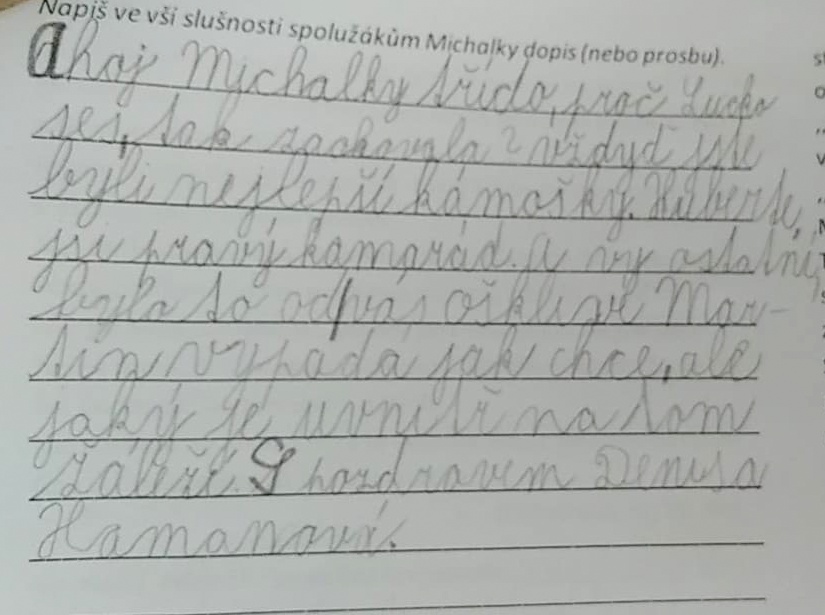 Napiš ve vší slušnosti spolužákům Michalky dopis (nebo prosbu).
Ahoj Michalky třído, proč Lucko
ses, tak zachovala? vždyť jste
byli nejlepší kámošky. Huberte,
jsi pravý kamarád. A vy ostatní,
bylo to od vás ošklivé Mar-
tin vypadá jak chce, ale
jaký je uvnitř na tom
záleží. S pozdravem Denisa
Hamanová.